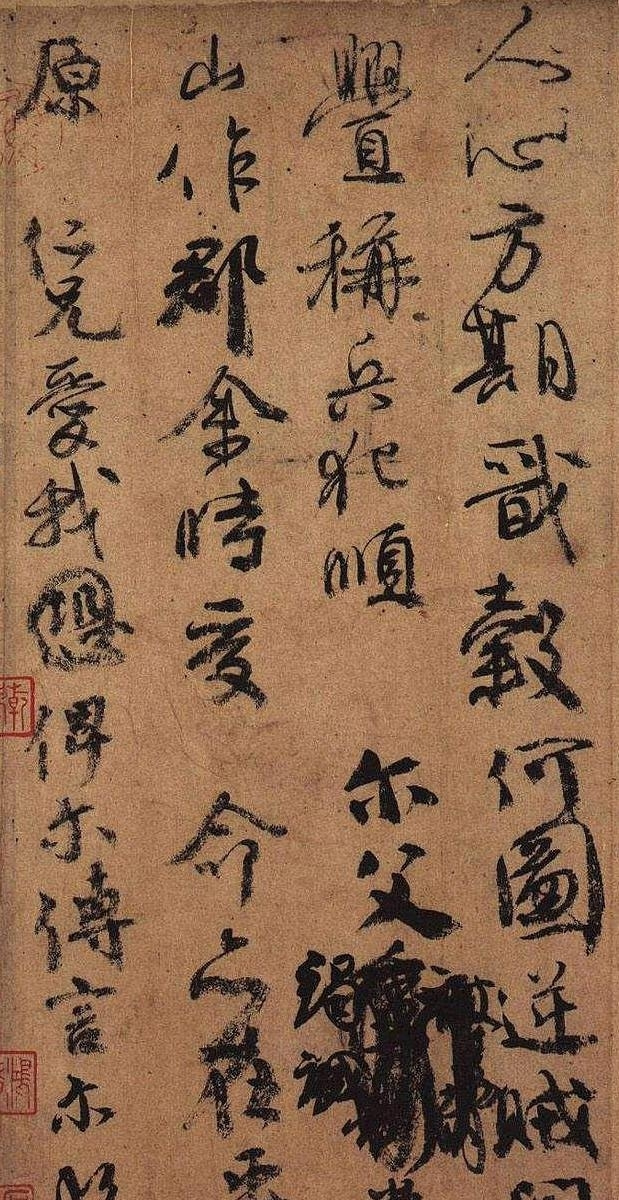 人心方期戩穀何圖逆賊閒
釁稱兵犯順 尔父竭誠常
山作郡余時受 命亦在平
原 仁兄愛我俾尔傳言尔